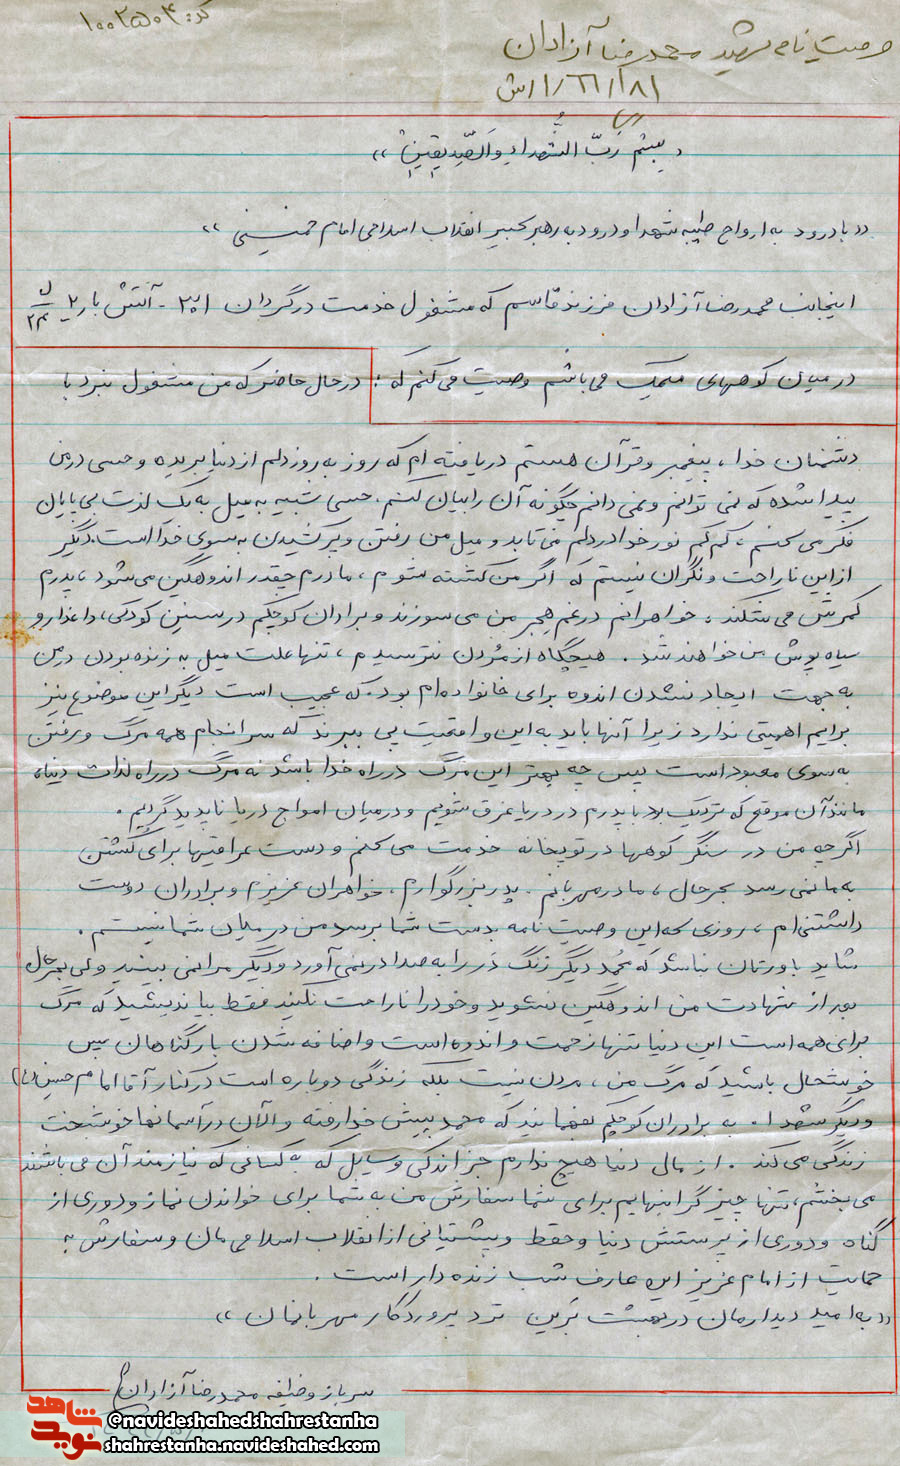 کد: ۱۰۰۲۵۰۴
وصیت نامه شهید محمدرضا آزادان
بسم رَبّ الشُهداءِ والصّدیقین
«با درود به ارواح طیبه شهدا و درود به رهبر کبیر انقلاب اسلامی امام خمینی»
اینجانب محمدرضا آزادان فرزند قاسم که مشغول خدمت در گردان - آتش بار ۲
در میان کوههای میمک می باشم وصیت می کنم که: در حال حاضر که من مشغول نبرد با
دشمنان خدا، پیغمبر و قرآن هستم دریافته ام که روز به روز دلم از دنیا بریده و حسی در من
پیدا شده که نمی توانم و نمی دانم چگونه آن را بیان کنم، حسی شبیه به میل به یک لذت بی پایان
فکر می کنم، کم کم نور خدا در دلم می تابد و میل من رفتن و پر کشیدن به سوی خدا است، دیگر
از این ناراحت و نگران نیستم که اگر من کشته شوم، مادرم چقدر اندوهگین می شود، پدرم
کمرش می شکند، خواهرانم در غم هِجر من می سوزند و برادران کوچکم در سنین کودکی، داغدار و
سیاه پوش من خواهند شد. هیچگاه از مُردن نترسیدم، تنها علت میل به زنده بودن در من
به جهت ایجاد نشدن اندوه برای خانواده ام بود. که عجیب است دیگر این موضوع نیز
برایم اهمیتی ندارد زیرا آنها باید به این واقعیت پی ببرند که سرانجام همه مرگ و رفتن
به سوی معبود است پس چه بهتر این مرگ در راه خدا باشد نه مرگ در راه لذات دنیا،
مانند آن موقع که نزدیک بود با پدرم در دریا غرق شویم و در میان امواج دریا ناپدید گردیم.
اگر چه من در سنگر کوهها در توپخانه خدمت می کنم و دست عراقیها برای کشتن
به ما نمی رسد بهرحال، مادر مهربانم. پدر بزرگوارم، خواهران عزیزم و برادران دوست
داشتنی ام، روزی که این وصیت نامه بدست شما برسد من در میان شما نیستم.
شاید باورتان نباشد که مُحمد دیگر زنگ دَر را به صدا در نمی آورد و دیگر مرا نمی بینید ولی بهرحال
بعد از شهادت من اندوهگین نشوید و خود را ناراحت نکنید فقط بیاندیشید که مرگ
برای همه است این دنیا تنها زحمت و اندوه است و اضافه شدن بار گناهان پس
خوشحال باشید که مرگ من، مردن نیست بلکه زندگی دوباره است در کنار آقا امام حسین (ع)
و دیگر شهدا. به برادران کوچکم بفهمانید که محمد پیش خدا رفته و الان در آسمانها خوشبخت
زندگی می کند. از مال دنیا هیچ ندارم جز اندکی وسایل که به کسانی که نیازمند آن می باشند
می بخشم، تنها چیز گرانبهایم برای شما سفارش من به شما برای خواندن نماز و دوری از
گناه و دوری از پرستش دنیا و حفظ و پشتیبانی از انقلاب اسلامی مان و سفارش به
حمایت از امام عزیز این عارف شب زنده دار است.
«به امید دیدارمان در بهشت برین نزد پروردگار مهربانمان»
سرباز وظیفه محمدرضا آزادان
شاهد
نوید
@navideshahedshahrestanha
shahrestanha.navideshahed.com